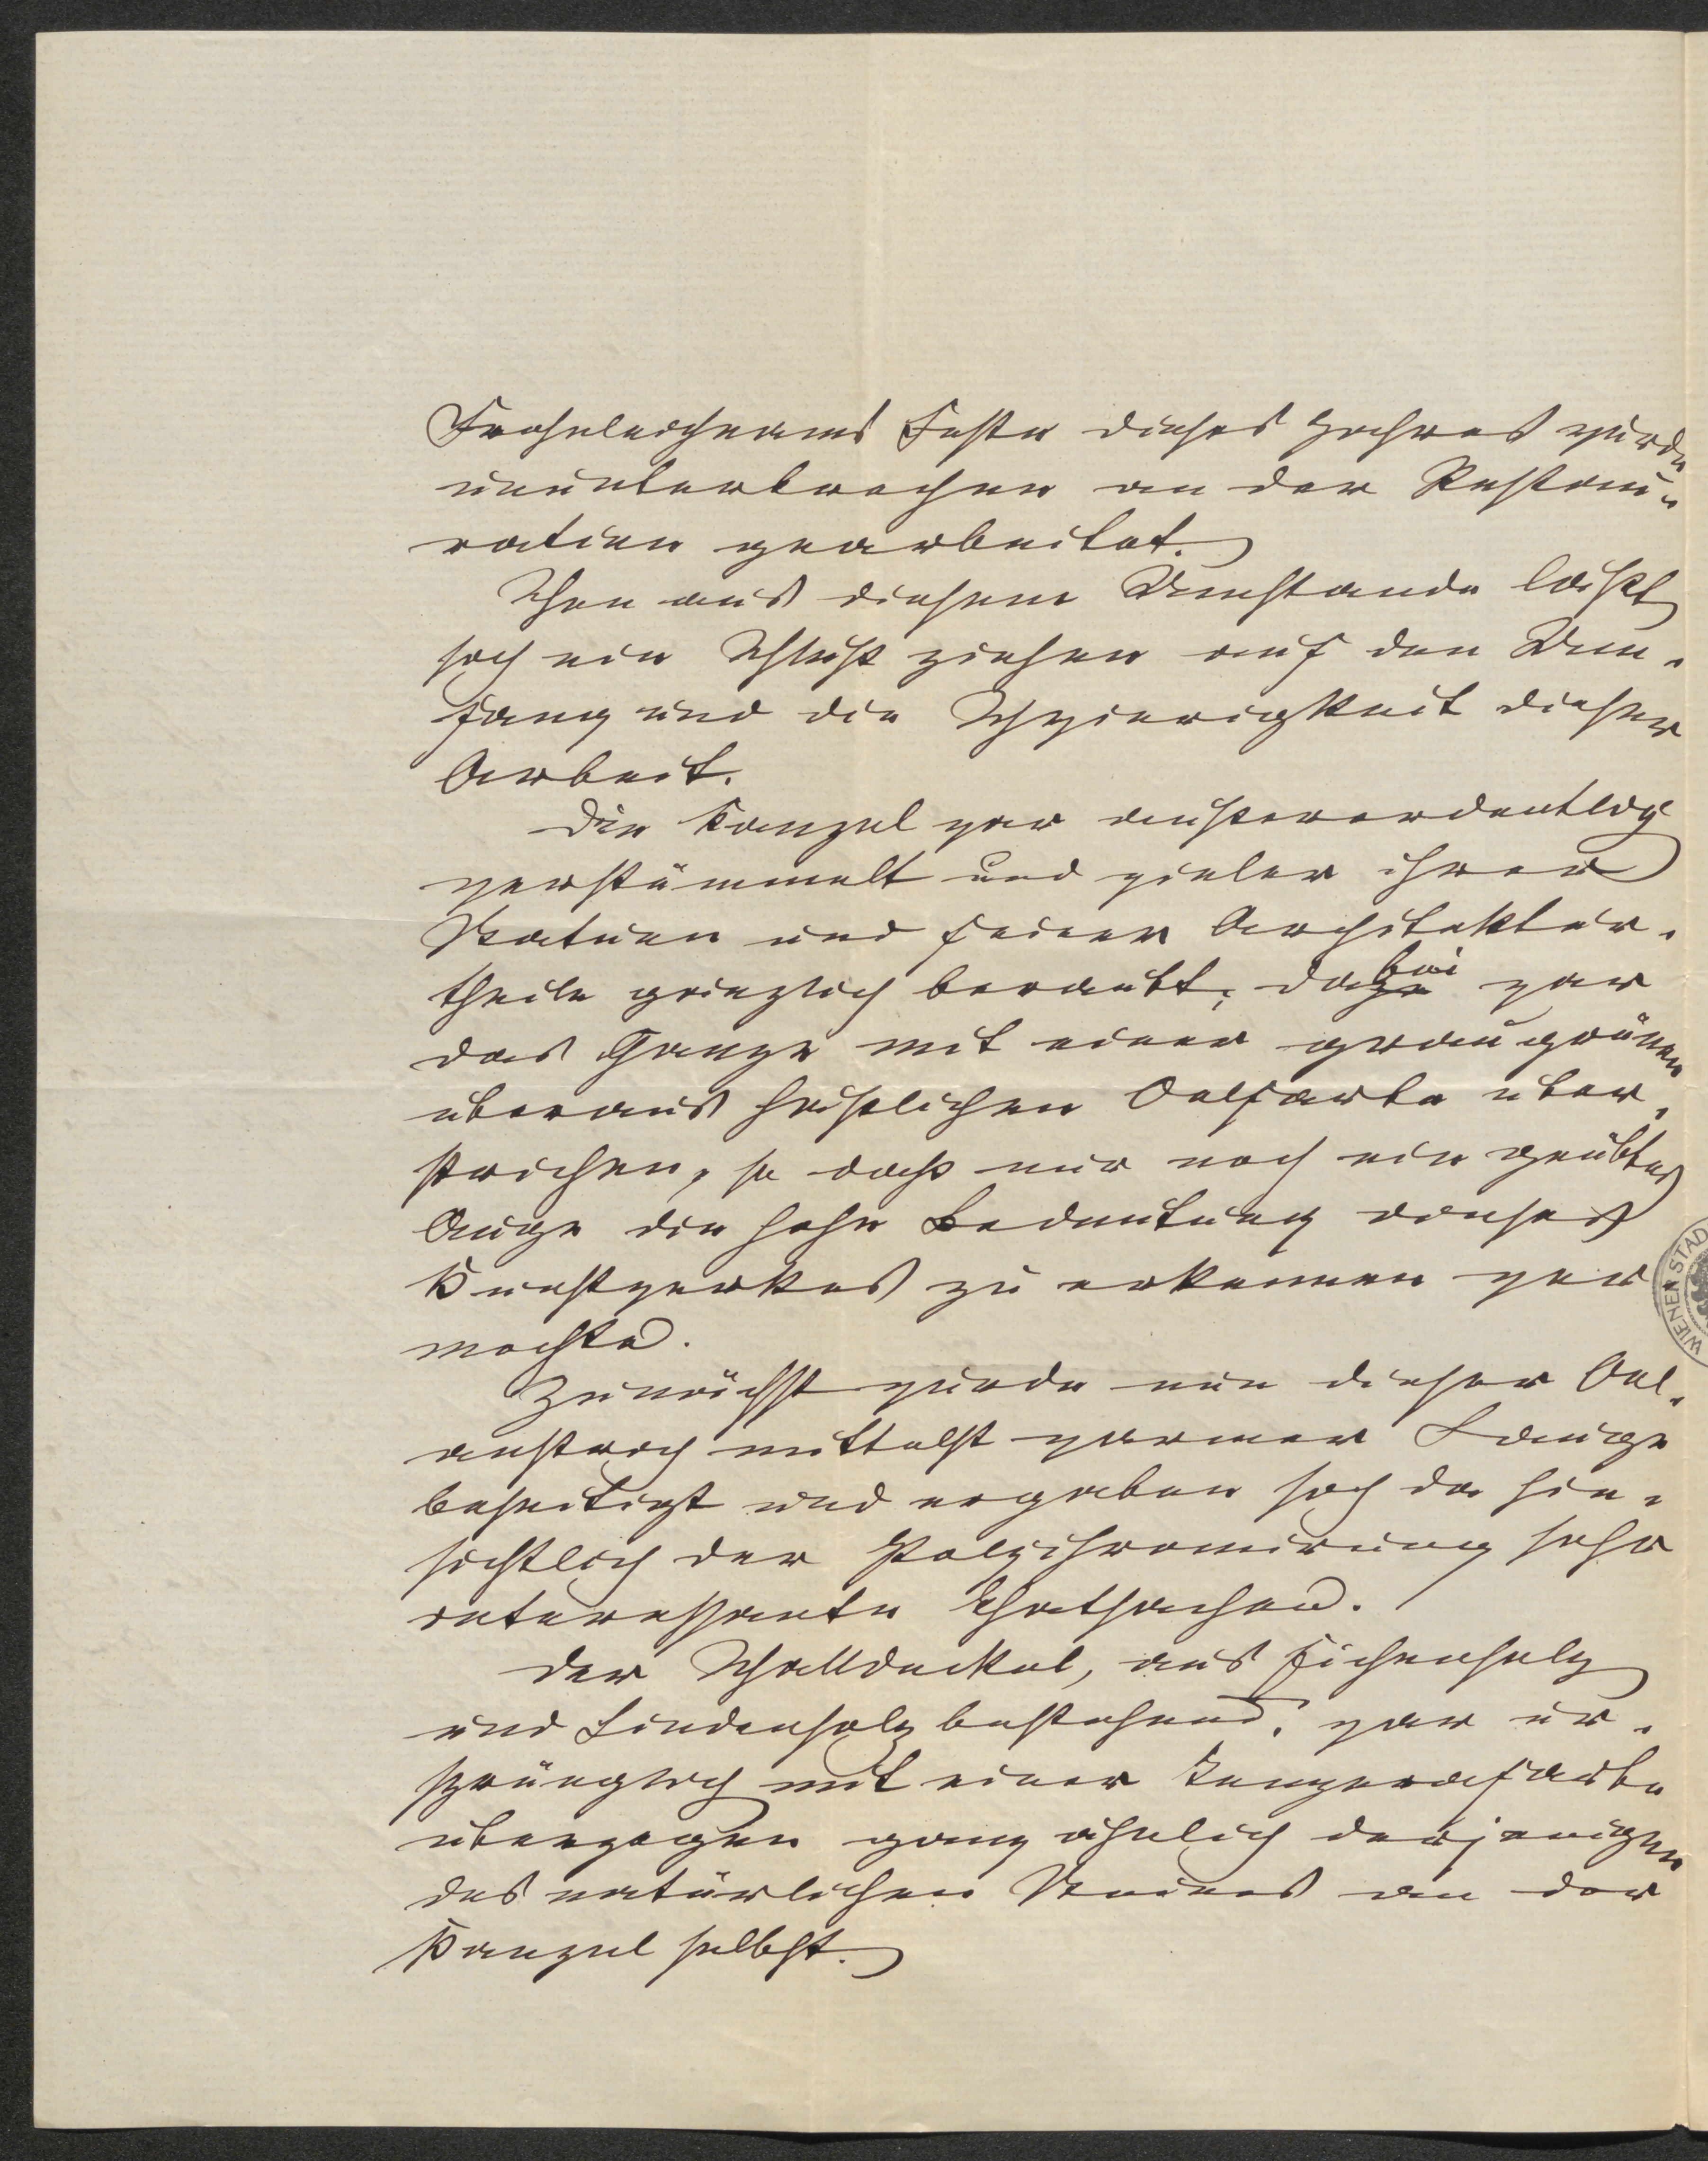 Frohnleichnams Feste dieses Jahres wurde
ununterbrochen an der Restau-
ration gearbeitet.
Schon aus diesem Umstande läßt
sich ein Schluß ziehen auf den Um-
fang und die Schwierigkeit dieser
Arbeit.
Die Kanzel war außerordentlich
verstümmelt und vieler ihrer
Statuen und feiner Architektur-
theile gänzlich beraubt, dabei war
das Ganze mit einer graugrünen
überaus häßlichen Oelfarbe über-
strichen, so daß nur noch ein geübtes
Auge die hohe Bedeutung dieses
Kunstwerkes zu erkennen ver
mochte.
Zunächst wurde nun dieser Oel-
anstrich mittelst warmer Lauge
beseitigt und ergaben sich da hin-
sichtlich der Polychromirung sehr
interessante Thatsachen.
Der Schalldeckel, aus Eichenholz
und Lindenholz bestehend, war ur-
sprünglich mit einer Temperafarbe
überzogen ganz ähnlich derjenigen
des natürlichen Steines an der
Kanzel selbst.
WIENER STAD